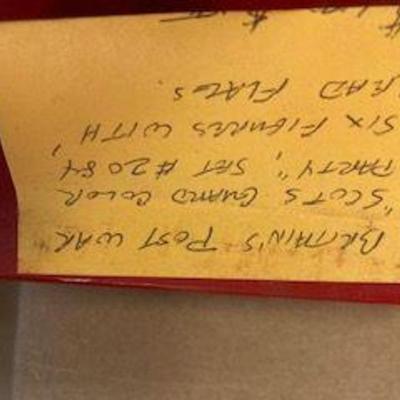 BRITAIN'S POST WAR
"SCOTS GUARD COLOR
PARTY", SET #2084
SIX FIGURES WITH,
LEAD FLAGS.